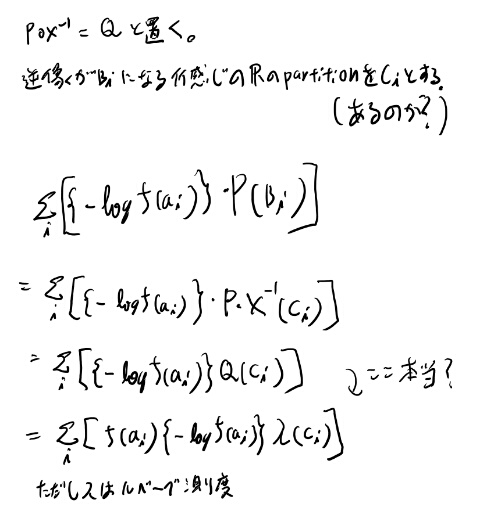 P∘X⁻¹ = Q と置く。
逆像がBiになる何感じのRのpartitionをCiとする.
(あるのか?)
Σ_i [{-log f(a_i)}・P(B_i)]
= Σ_i [{-log f(a_i)}・P・X⁻¹(C_i)]
= Σ_i [{-log f(a_i)} Q(C_i)]
ここ本当?
= Σ_i [f(a_i){-log f(a_i)} λ(C_i)]
ただしλはルベーグ測度